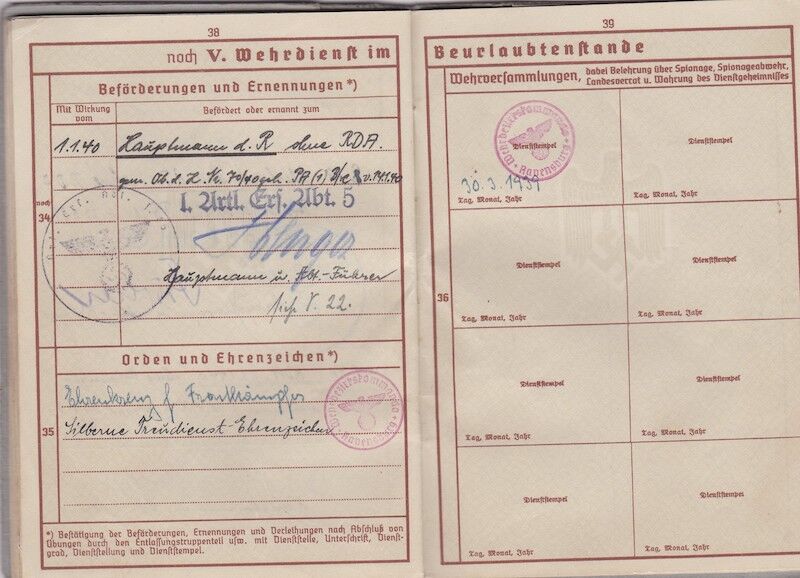 38
noch V. Wehrdienst im
Beförderungen und Ernennungen*)
Mit Wirkung vom
Befördert oder ernannt zum
1.1.40 Hauptmann d. R ohne RDA.
noch 34
I. Artl. Ers. Abt. 5
Hauptmann u. Abt.-Führer
V. 22.
Orden und Ehrenzeichen*)
35
Ehrenkreuz f Frontkämpfer
Silberne Treudienst-Ehrenzeichen
Wehrbezirkskommando Ravensburg
*) Bestätigung der Beförderungen, Ernennungen und Verleihungen nach Abschluß von
Übungen durch den Entlassungstruppenteil usw. mit Dienststelle, Unterschrift, Dienst-
grad, Dienststellung und Dienststempel.
39
Beurlaubtenstande
Wehrversammlungen, dabei Belehrung über Spionage, Spionageabwehr,
Landesverrat u. Wahrung des Dienstgeheimnisses
Wehrbezirkskommando Ravensburg
Dienststempel
Dienststempel
30.3.1939
Tag, Monat, Jahr
Tag, Monat, Jahr
36
Dienststempel
Dienststempel
Tag, Monat, Jahr
Tag, Monat, Jahr
Dienststempel
Dienststempel
Tag, Monat, Jahr
Tag, Monat, Jahr
Dienststempel
Dienststempel
Tag, Monat, Jahr
Tag, Monat, Jahr